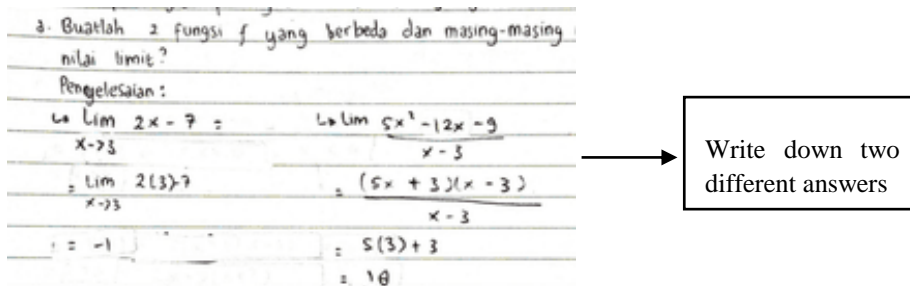 a. Buatlah 2 fungsi f yang berbeda dan masing-masing
nilai limit?
Pengelesaian :
↳ Lim 2x - 7 =
x->3
= Lim 2(3)-7
x->3
= -1
↳ Lim 5x² -12x - 9
x - 3
= (5x + 3)(x - 3)
x - 3
= 5(3) + 3
= 18
Write down two
different answers